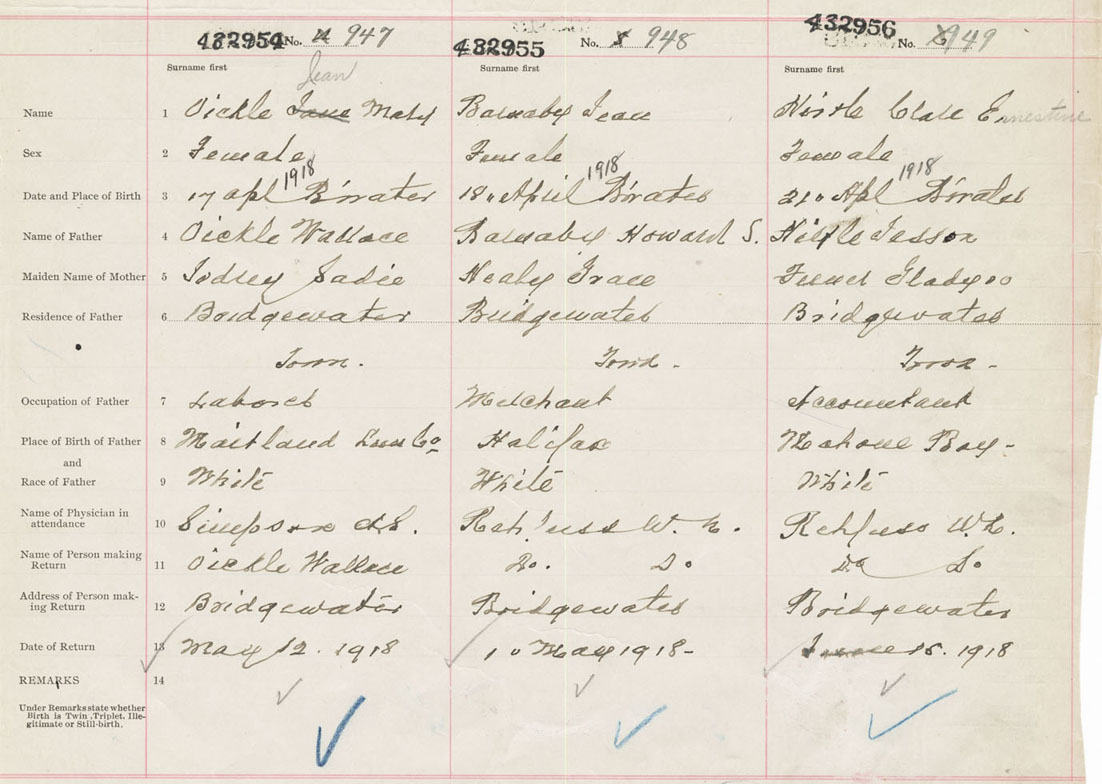 432954 No. 947 432955 No. 948 432956 No. 949
Surname first Jean Surname first Surname first
Name 1 Oickle Jane Mary Barnaby Jean Hirtle Clare Ernestine
Sex 2 Female Female Female
1918 1918 1918
Date and Place of Birth 3 17 Apl B'water 18" April B'water 21" Apl B'water
Name of Father 4 Oickle Wallace Barnaby Howard S. Hirtle
Maiden Name of Mother 5 Sadie Healy Grace Gladys
Residence of Father 6 Bridgewater Bridgewater Bridgewater
Town. Town. Town.
Occupation of Father 7 Laborer Merchant Accountant
Place of Birth of Father 8 Maitland Lun Co Halifax Mahone Bay-
and
Race of Father 9 White White White
Name of Physician in
attendance 10 Simpson Rehfuss W. N. Rehfuss W. N.
Name of Person making
Return 11 Oickle Wallace Do. Do Do Do
Address of Person mak-
ing Return 12 Bridgewater Bridgewater Bridgewater
Date of Return 13 May 12. 1918 1" May 1918- June 15. 1918
REMARKS 14
Under Remarks state whether
Birth is Twin, Triplet, Ille-
gitimate or Still-birth.